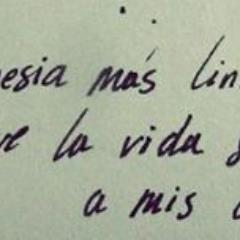 esia más lin
ve la vida
a mis